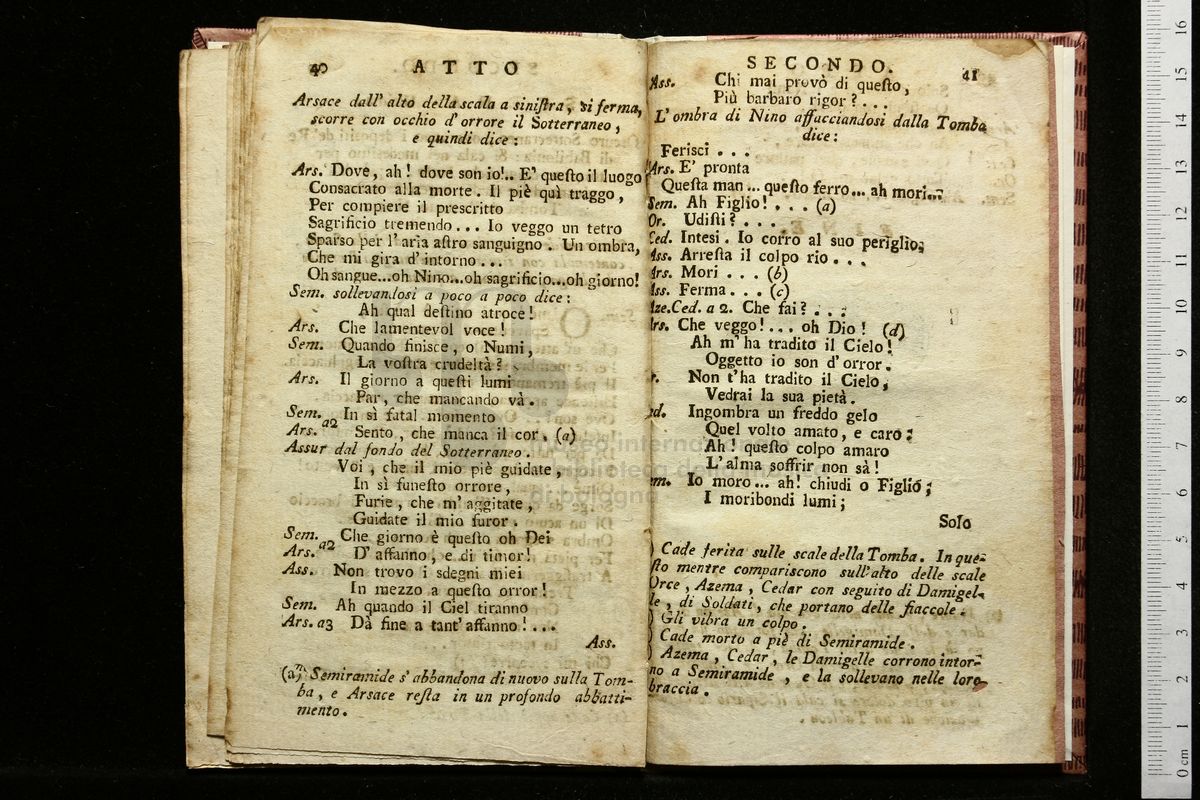 40 ATTO
Arsace dall' alto della scala a siniſtra, si ferma,
scorre con occhio d'orrore il Sotterraneo,
e quindi dice:
Ars. Dove, ah! dove son io!.. E' queſto il luogo
Consacrato alla morte. Il piè quì traggo,
Per compiere il prescritto
Sagrificio tremendo... Io veggo un tetro
Sparso per l'aria aſtro sanguigno. Un ombra,
Che mi gira d'intorno...
Oh sangue...oh Nino...oh sagrificio...oh giorno!
Sem. sollevandosi a poco a poco dice:
Ah qual deſtino atroce!
Ars. Che lamentevol voce!
Sem. Quando finisce, o Numi,
La voſtra crudeltà?
Ars. Il giorno a queſti lumi
Par, che mancando và.
Sem. a2 In sì fatal momento
Ars. Sento, che manca il cor. (a)
Assur dal fondo del Sotterraneo.
Voi, che il mio piè guidate,
In sì funeſto orrore,
Furie, che m'aggitate,
Guidate il mio furor.
Sem. a2 Che giorno è queſto oh Dei
Ars. D'affanno, e di timor!
Ass. Non trovo i sdegni miei
In mezzo a queſto orror!
Sem. Ah quando il Ciel tiranno
Ars. a3 Dà fine a tant'affanno!...
Ass.
(a) Semiramide s'abbandona di nuovo sulla Tom-
ba, e Arsace reſta in un profondo abbatti-
mento.
SECONDO. 41
Ass. Chi mai provò di queſto,
Più barbaro rigor?...
L'ombra di Nino affacciandosi dalla Tomba
dice:
Ferisci...
Ars. E' pronta
Queſta man... queſto ferro... ah mori...
Sem. Ah Figlio!... (a)
Or. Udiſti?...
Ced. Intesi. Io corro al suo periglio.
Ass. Arreſta il colpo rio...
Ars. Mori... (b)
Ass. Ferma... (c)
Aze.Ced. a 2. Che fai?...
Ars. Che veggo!... oh Dio! (d)
Ah m'ha tradito il Cielo!
Oggetto io son d'orror.
r. Non t'ha tradito il Cielo,
Vedrai la sua pietà.
ed. Ingombra un freddo gelo
Quel volto amato, e caro:
Ah! queſto colpo amaro
L'alma soffrir non sà!
em. Io moro... ah! chiudi o Figlio;
I moribondi lumi;
Solo
) Cade ferita sulle scale della Tomba. In que-
ſto mentre compariscono sull'alto delle scale
Orce, Azema, Cedar con seguito di Damigel-
le, di Soldati, che portano delle fiaccole.
) Gli vibra un colpo.
) Cade morto a piè di Semiramide.
) Azema, Cedar, le Damigelle corrono intor-
no a Semiramide, e la sollevano nelle loro
braccia.
museo internazionale
biblioteca della musica
di bologna
0 cm 1 2 3 4 5 6 7 8 9 10 11 12 13 14 15 16